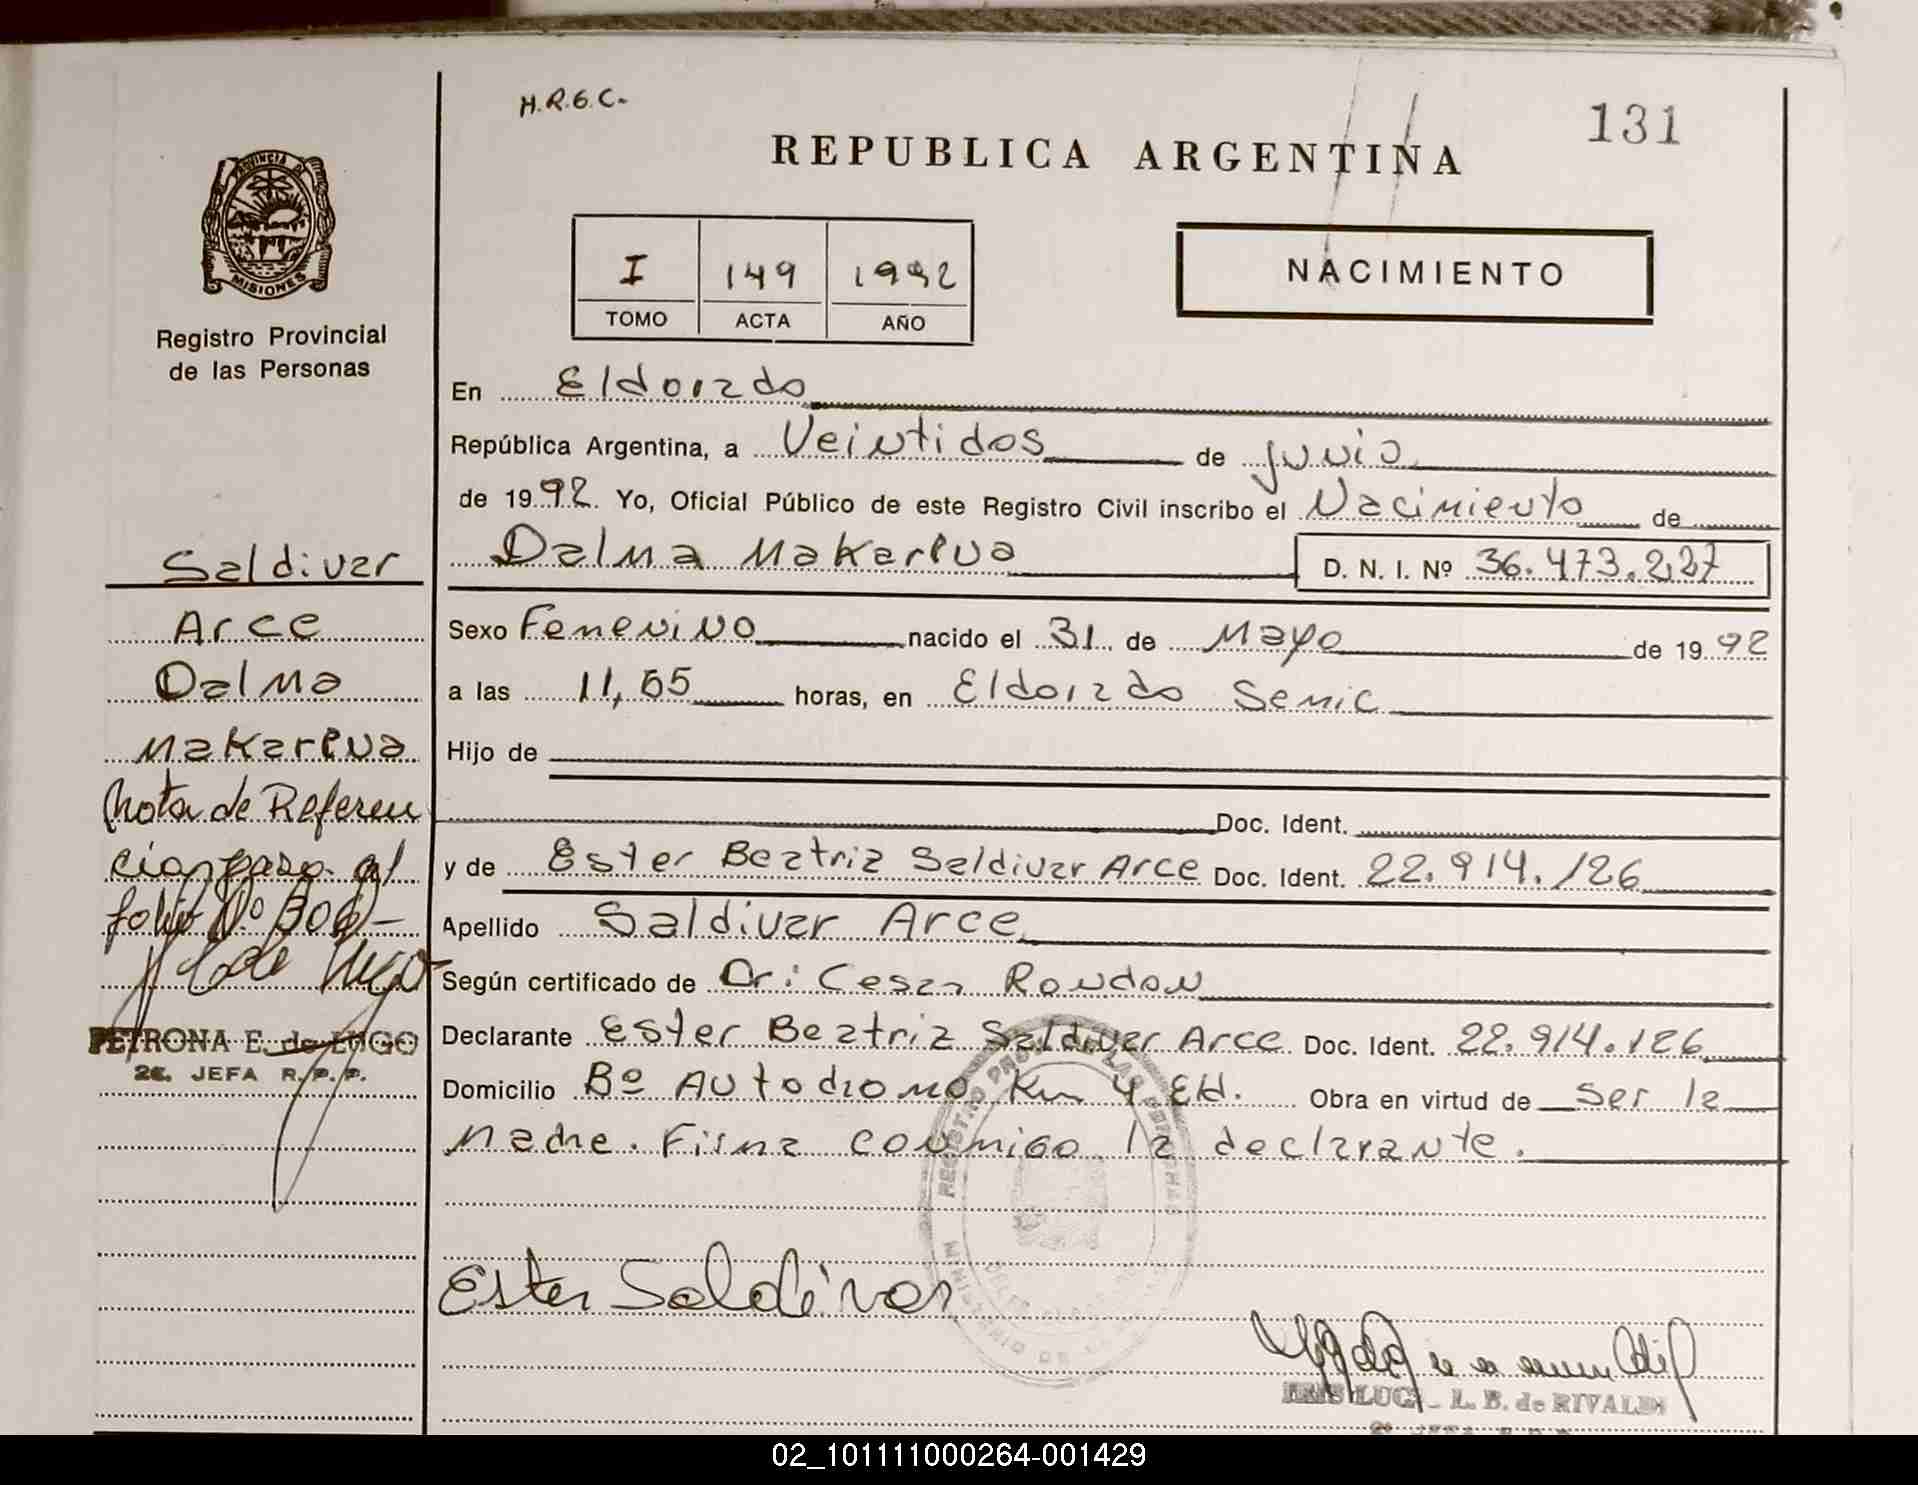 H.R.G.C.
131
REPUBLICA ARGENTINA
PROVINCIA DE
MISIONES
Registro Provincial
de las Personas
I 149 1992
TOMO ACTA AÑO
NACIMIENTO
En Eldorado
República Argentina, a Veintidos de junio
de 1992 Yo, Oficial Público de este Registro Civil inscribo el Nacimiento de
Dalma Makarena D. N. I. Nº 36.473.227
Sexo Femenino nacido el 31 de Mayo de 1992
a las 11,55 horas, en Eldorado Semic
Hijo de
Doc. Ident.
y de Ester Beatriz Saldivar Arce Doc. Ident. 22.914.126
Apellido Saldivar Arce
Según certificado de Dr: Cesar Rondon
Declarante Ester Beatriz Saldivar Arce Doc. Ident. 22.914.126
Domicilio Bº Autodromo Km 4 Eld. Obra en virtud de Ser la
Madre. Firma conmigo la declarante.
Saldivar
Arce
Dalma
Makarena
Nota de Referen
cia pasa al
folio Nº 306-
PETRONA E. de LUGO
2a. JEFA R.P.P.
Ester Saldivar
L. B. de RIVALDI
02_101111000264-001429